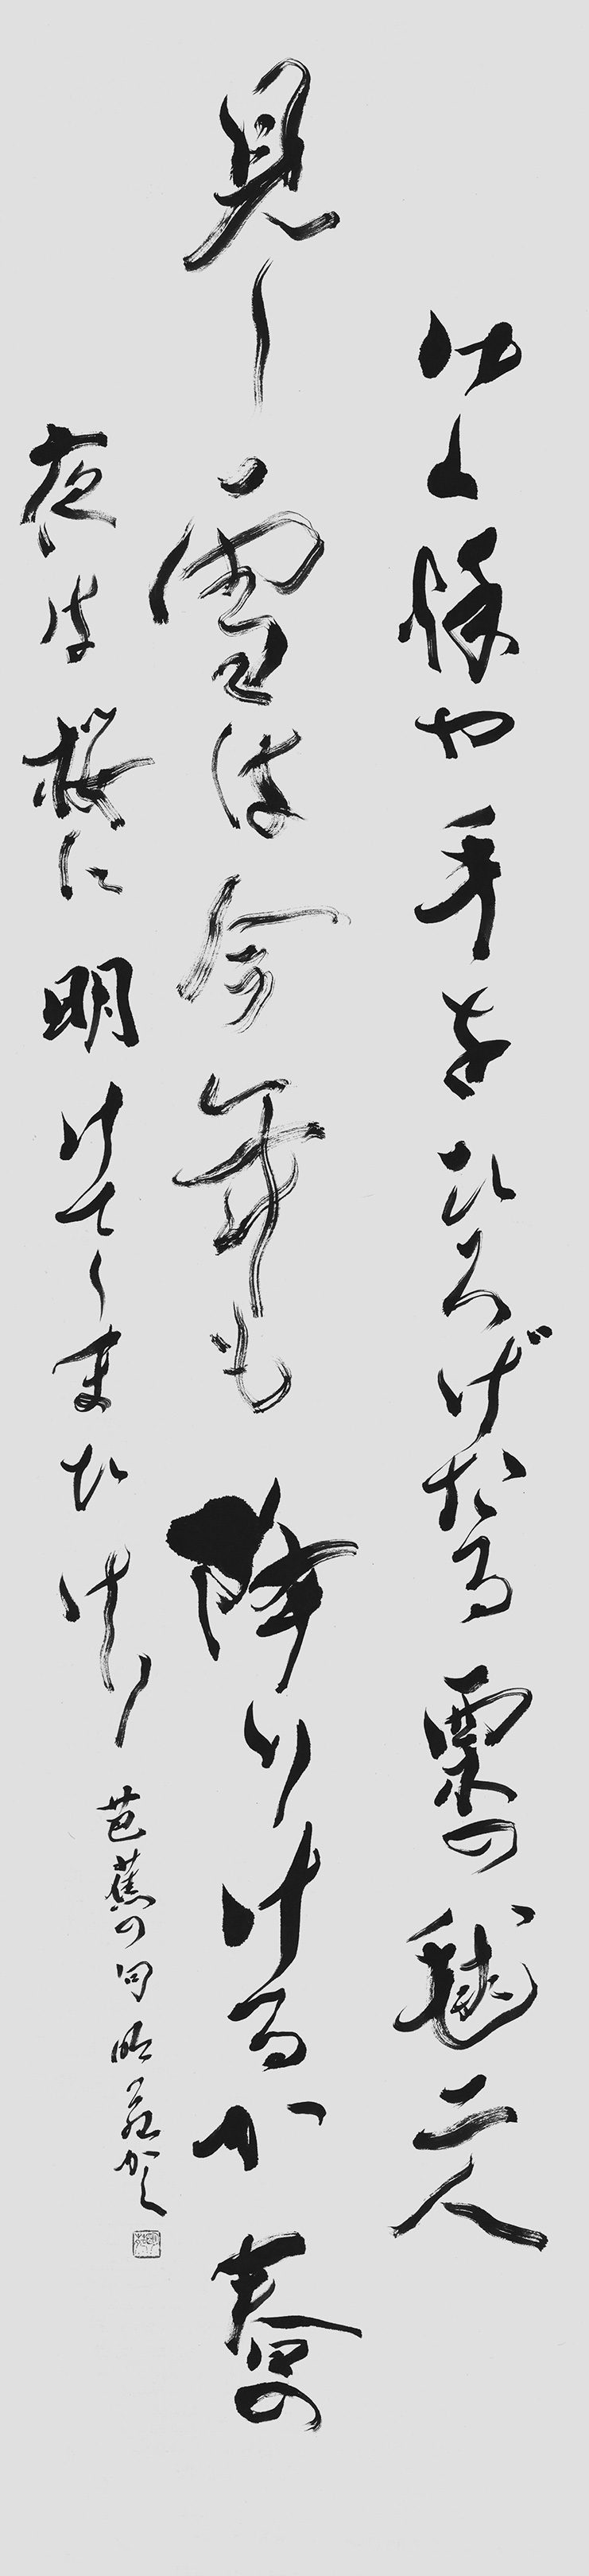 ゆく秋や手をひろげたる栗の毬二人
見し雪は今年も降りけるか春の
夜は桜に明けてしまひけり
芭蕉の句